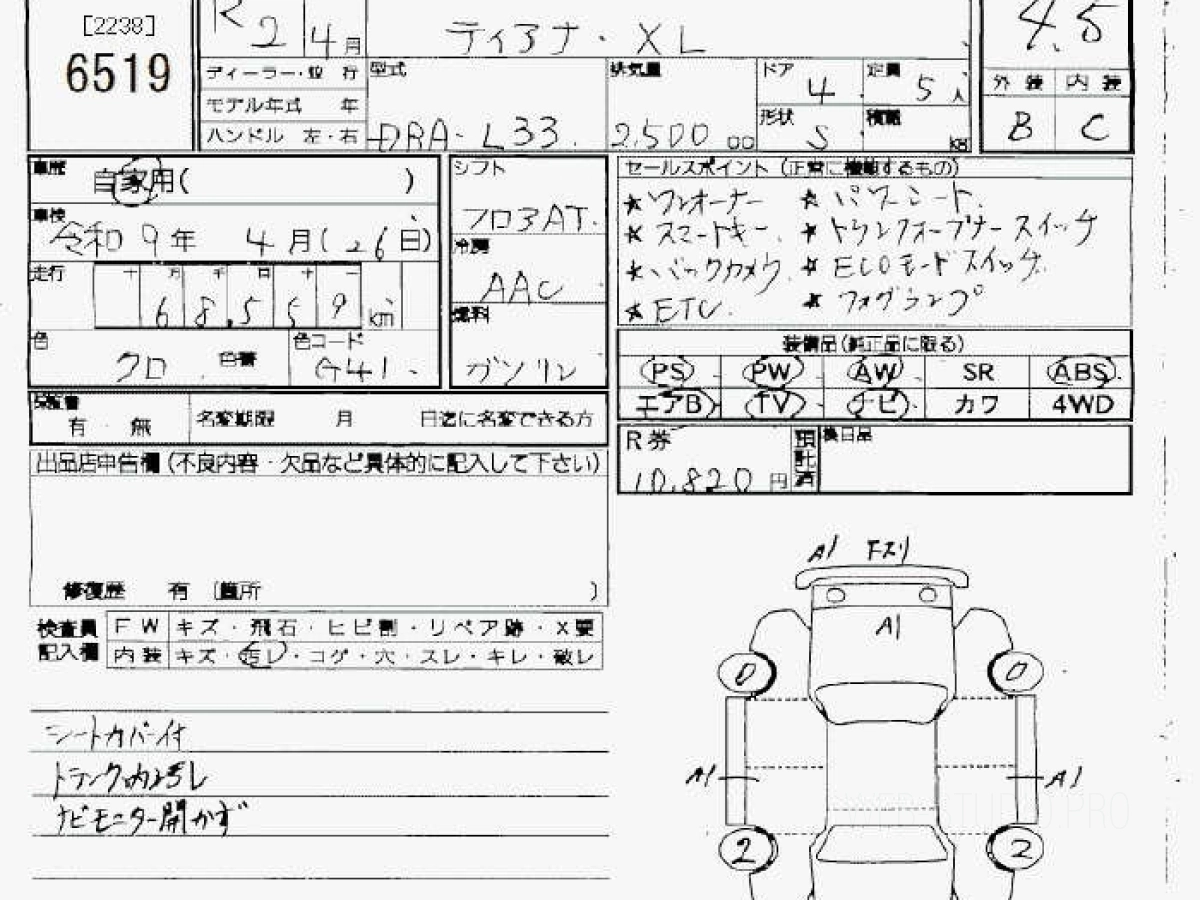 [2238]
6519
R2 4月
ティアナ・XL
4.5
ディーラー・並行
モデル年式 年
ハンドル 左・右
型式
DBA-L33
排気量
2,500 cc
ドア 4
定員 5人
形状 S
積載 kg
外装 内装
B C
車歴
自家用( )
車検
令和9年 4月(26日)
走行
十 万 千 百 十 一
68,559 km
色
クロ 色替
色コード
G41
シフト
フロアAT
冷房
AAC
燃料
ガソリン
セールスポイント (正常に機能するもの)
★ワンオーナー ★パワーシート
★スマートキー ★トランクオープナースイッチ
★バックカメラ ★ECOモードスイッチ
★ETC ★フォグランプ
装備品(純正品に限る)
PS PW AW SR ABS
エアB TV ナビ カワ 4WD
保証書
有・無
名変期限 月 日迄に名変できる方
R券
10,820円
預託済
後日品
出品店申告欄(不良内容・欠品など具体的に記入して下さい)
修復歴 有 〔箇所 )
検査員記入欄
FW キズ・飛石・ヒビ割・リペア跡・X要
内装 キズ・汚レ・コゲ・穴・スレ・キレ・破レ
シートカバー付
トランク内汚レ
ナビモニター開かず
A1 Fスリ
A1
0 0
A1 A1
2 2